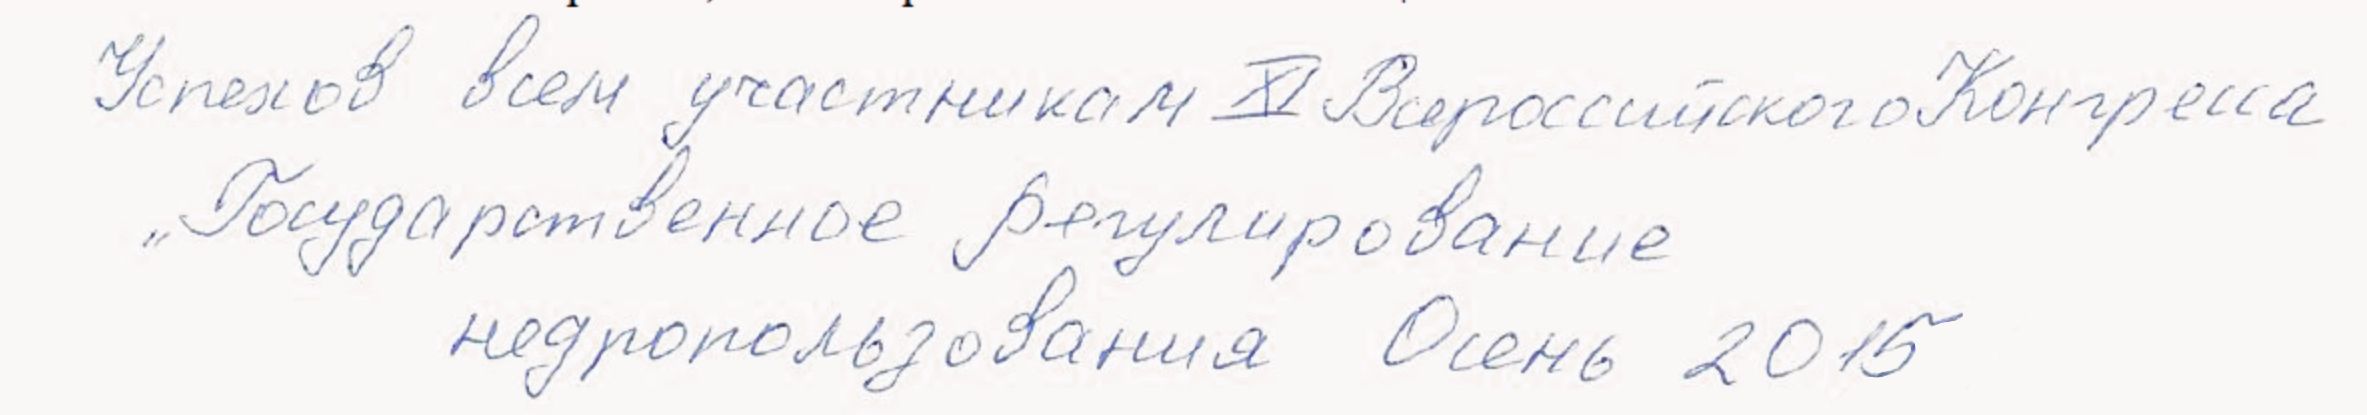 Успехов всем участникам XI Всероссийского Конгресса
„Государственное регулирование
недропользования Осень 2015